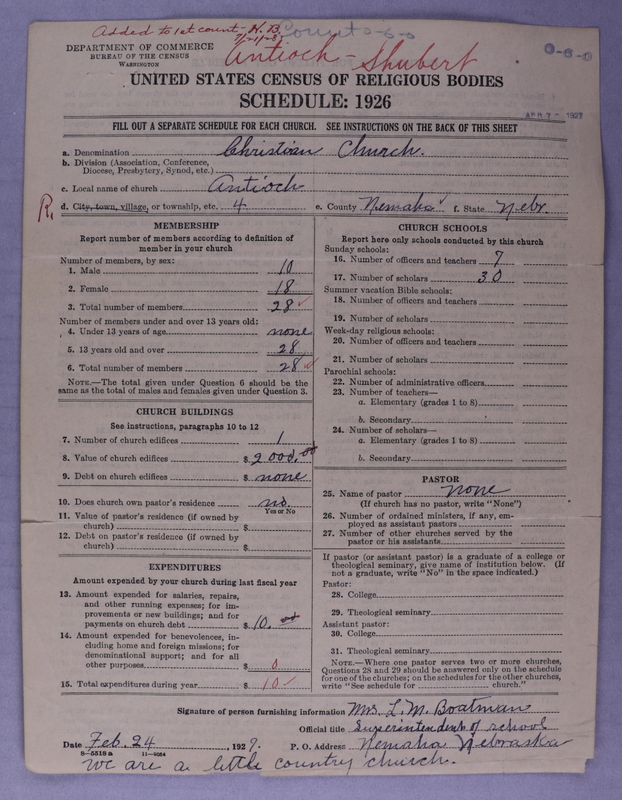 Added to 1st count - H.B.
7/21/28
Count 0-6-0
0-6-0
DEPARTMENT OF COMMERCE
BUREAU OF THE CENSUS
WASHINGTON
Antioch - Shubert
UNITED STATES CENSUS OF RELIGIOUS BODIES
SCHEDULE: 1926
APR 7 - 1927
FILL OUT A SEPARATE SCHEDULE FOR EACH CHURCH. SEE INSTRUCTIONS ON THE BACK OF THIS SHEET
a. Denomination Christian Church.
b. Division (Association, Conference,
Diocese, Presbytery, Synod, etc.)
c. Local name of church Antioch
R. d. City, town, village, or township, etc. 4 e. County Nemaha f. State Nebr.
MEMBERSHIP
Report number of members according to definition of
member in your church
Number of members, by sex:
1. Male 10
2. Female 18
3. Total number of members 28 ✓
Number of members under and over 13 years old:
4. Under 13 years of age none
5. 13 years old and over 28
6. Total number of members 28 ✓
NOTE.—The total given under Question 6 should be the
same as the total of males and females given under Question 3.
CHURCH BUILDINGS
See instructions, paragraphs 10 to 12
7. Number of church edifices 1
8. Value of church edifices $ 2000.00
9. Debt on church edifices $ none
10. Does church own pastor's residence no
Yes or No
11. Value of pastor's residence (if owned by
church) $
12. Debt on pastor's residence (if owned by
church) $
EXPENDITURES
Amount expended by your church during last fiscal year
13. Amount expended for salaries, repairs,
and other running expenses; for im-
provements or new buildings; and for
payments on church debt $ 10.00
14. Amount expended for benevolences, in-
cluding home and foreign missions; for
denominational support; and for all
other purposes $ 0
15. Total expenditures during year $ 10 ✓
CHURCH SCHOOLS
Report here only schools conducted by this church
Sunday schools:
16. Number of officers and teachers 7
17. Number of scholars 30
Summer vacation Bible schools:
18. Number of officers and teachers
19. Number of scholars
Week-day religious schools:
20. Number of officers and teachers
21. Number of scholars
Parochial schools:
22. Number of administrative officers
23. Number of teachers—
a. Elementary (grades 1 to 8)
b. Secondary
24. Number of scholars—
a. Elementary (grades 1 to 8)
b. Secondary
PASTOR
25. Name of pastor none
(If church has no pastor, write "None")
26. Number of ordained ministers, if any, em-
ployed as assistant pastors
27. Number of other churches served by the
pastor or his assistants
If pastor (or assistant pastor) is a graduate of a college or
theological seminary, give name of institution below. (If
not a graduate, write "No" in the space indicated.)
Pastor:
28. College
29. Theological seminary
Assistant pastor:
30. College
31. Theological seminary
NOTE.—Where one pastor serves two or more churches,
Questions 28 and 29 should be answered only on the schedule
for one of the churches; on the schedules for the other churches,
write "See schedule for church."
Signature of person furnishing information Mrs. L. M. Boatman
Official title Superintendent of school
Date Feb. 24, 1927. P. O. Address Nemaha Nebraska
8—5518 a 11—9054
We are a little country church.